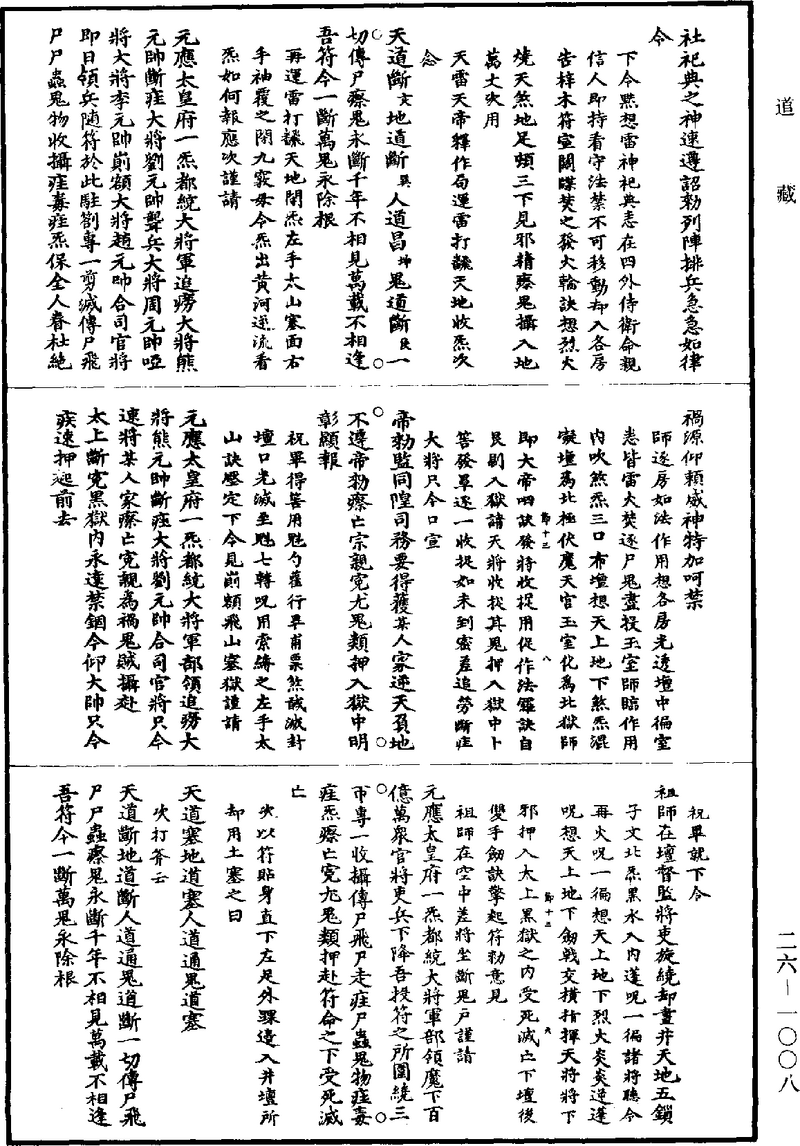 道藏
二六－一〇〇八
社祀典之神速遵詔勑列陣排兵急急如律
令
下令黙想雷神祀典悉在四外侍衛命親
信人即持看守法禁不可移動却入各房
告梓木符室關牒焚之發火輪訣想烈火
燒天煞地足頓三下見邪精瘵鬼攝入地
萬丈次用
天雷天帝釋作局運雷打䰠天地收炁次
念
天道斷地道斷人道昌鬼道斷一
切傳尸瘵鬼永斷千年不相見萬載不相逢
吾符令一斷萬鬼永除根
再運雷打䰠天地閉炁左手太山塞面右
手袖覆之閉九竅毋令炁出黄河逆流看
炁如何報應次謹請
元應太皇府一炁都統大將軍追癆大將熊
元帥斷疰大將劉元帥聾兵大將周元帥啞
將大將李元帥前額大將趙元帥合司官將
即日領兵隨符於此駐劄專一剪滅傳尸飛
尸尸蟲鬼物收攝疰毒疰炁保全人眷杜絶
禍源仰頼威神特加呵禁
師逐房如法作用想各房光透壇中徧室
悉皆雷火焚逐尸鬼盡投玉室師暗作用
内吹煞炁三口布壇想天上地下煞炁混
凝壇為北極伏魔天官玉室化為北獄師
即大帝四訣發將收捉用促作法羅訣自
艮剔入獄請天將收捉其鬼押入獄中卜
筶發單逐一收捉如未到密差追勞斷疰
大將只今口宣
帝勑監同隍司務要得獲某人家逆天負地
不遵帝勑瘵亡宗親寃尤鬼類押入獄中明
彰顯報
祝畢得筶用魁勺罡行畢甫票煞䤋滅封
壇口光滅至魁七轉呪用索縛之左手太
山訣壓定下令見前額飛山塞獄謹請
元應太皇府一炁都統大將軍部領追癆大
將熊元帥斷疰大將劉元帥合司官將只今
速將某人家瘵亡寃親為禍鬼賊攝赴
太上斷寃黒獄内永違禁錮今仰大帥只今
疾速押起前去
祝畢就下令
祖師在壇督監將吏旋繞却畫井天地五鎖
子文北炁黒水入内蓬呪一徧諸將聽令
再火呪一徧想天上地下烈火炎炎逆逢
呪想天上地下劒戟交横指揮天將將下
邪押入太上黒獄之内受死滅亡下壇後
雙手劒訣擎起符勑意見
祖師在空中差將坐斷鬼戸謹請
元應太皇府一炁都統大將軍部領魔下百
億萬衆官將吏兵下降吾投符之所圍繞三
帀專一收攝傳尸飛尸走疰尸蟲鬼物疰毒
疰炁瘵亡寃尤鬼類押赴符命之下受死滅
亡
次以符貼身直下左足外踝邊入井壇所
却用土塞之曰
天道塞地道塞人道通鬼道塞
次打筶云
天道斷地道斷人道通鬼道斷一切傳尸飛
尸尸蟲瘵鬼永斷千年不相見萬載不相逢
吾符令一斷萬鬼永除根